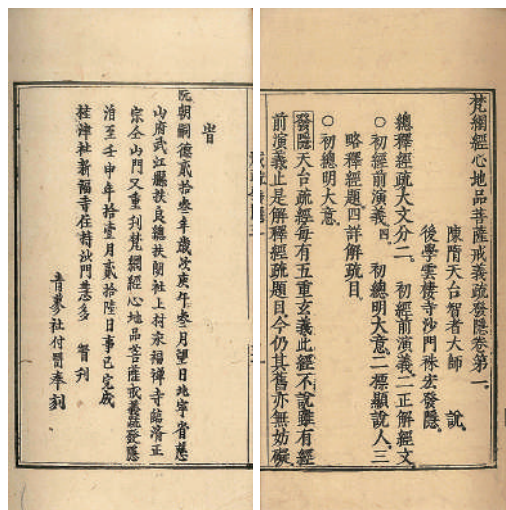 梵網經心地品菩薩戒義疏發隱卷第一
陳隋天台智者大師　說
後學雲棲寺沙門袾宏發隱
總釋經疏大文分二　初經前演義二正解經文
○初經前演義四　初總明大意二標顯說人三
略釋經題四詳解疏目
○初總明大意
發隱天台疏經每有五重玄義此經不說雖有經
前演義止是解釋經疏題目今仍其舊亦無妨礙
旹
阮朝嗣德貳拾叁年歲次庚午叁月望日北寧省慈
山府武江縣扶良總扶閑社上村永福禪寺臨濟正
宗仝山門又重刊梵網經心地品菩薩戒義疏發隱
洎至壬申年拾壹月貳拾陸日事已完成
桂津社新福寺住持沙門
刊
社付奉刻